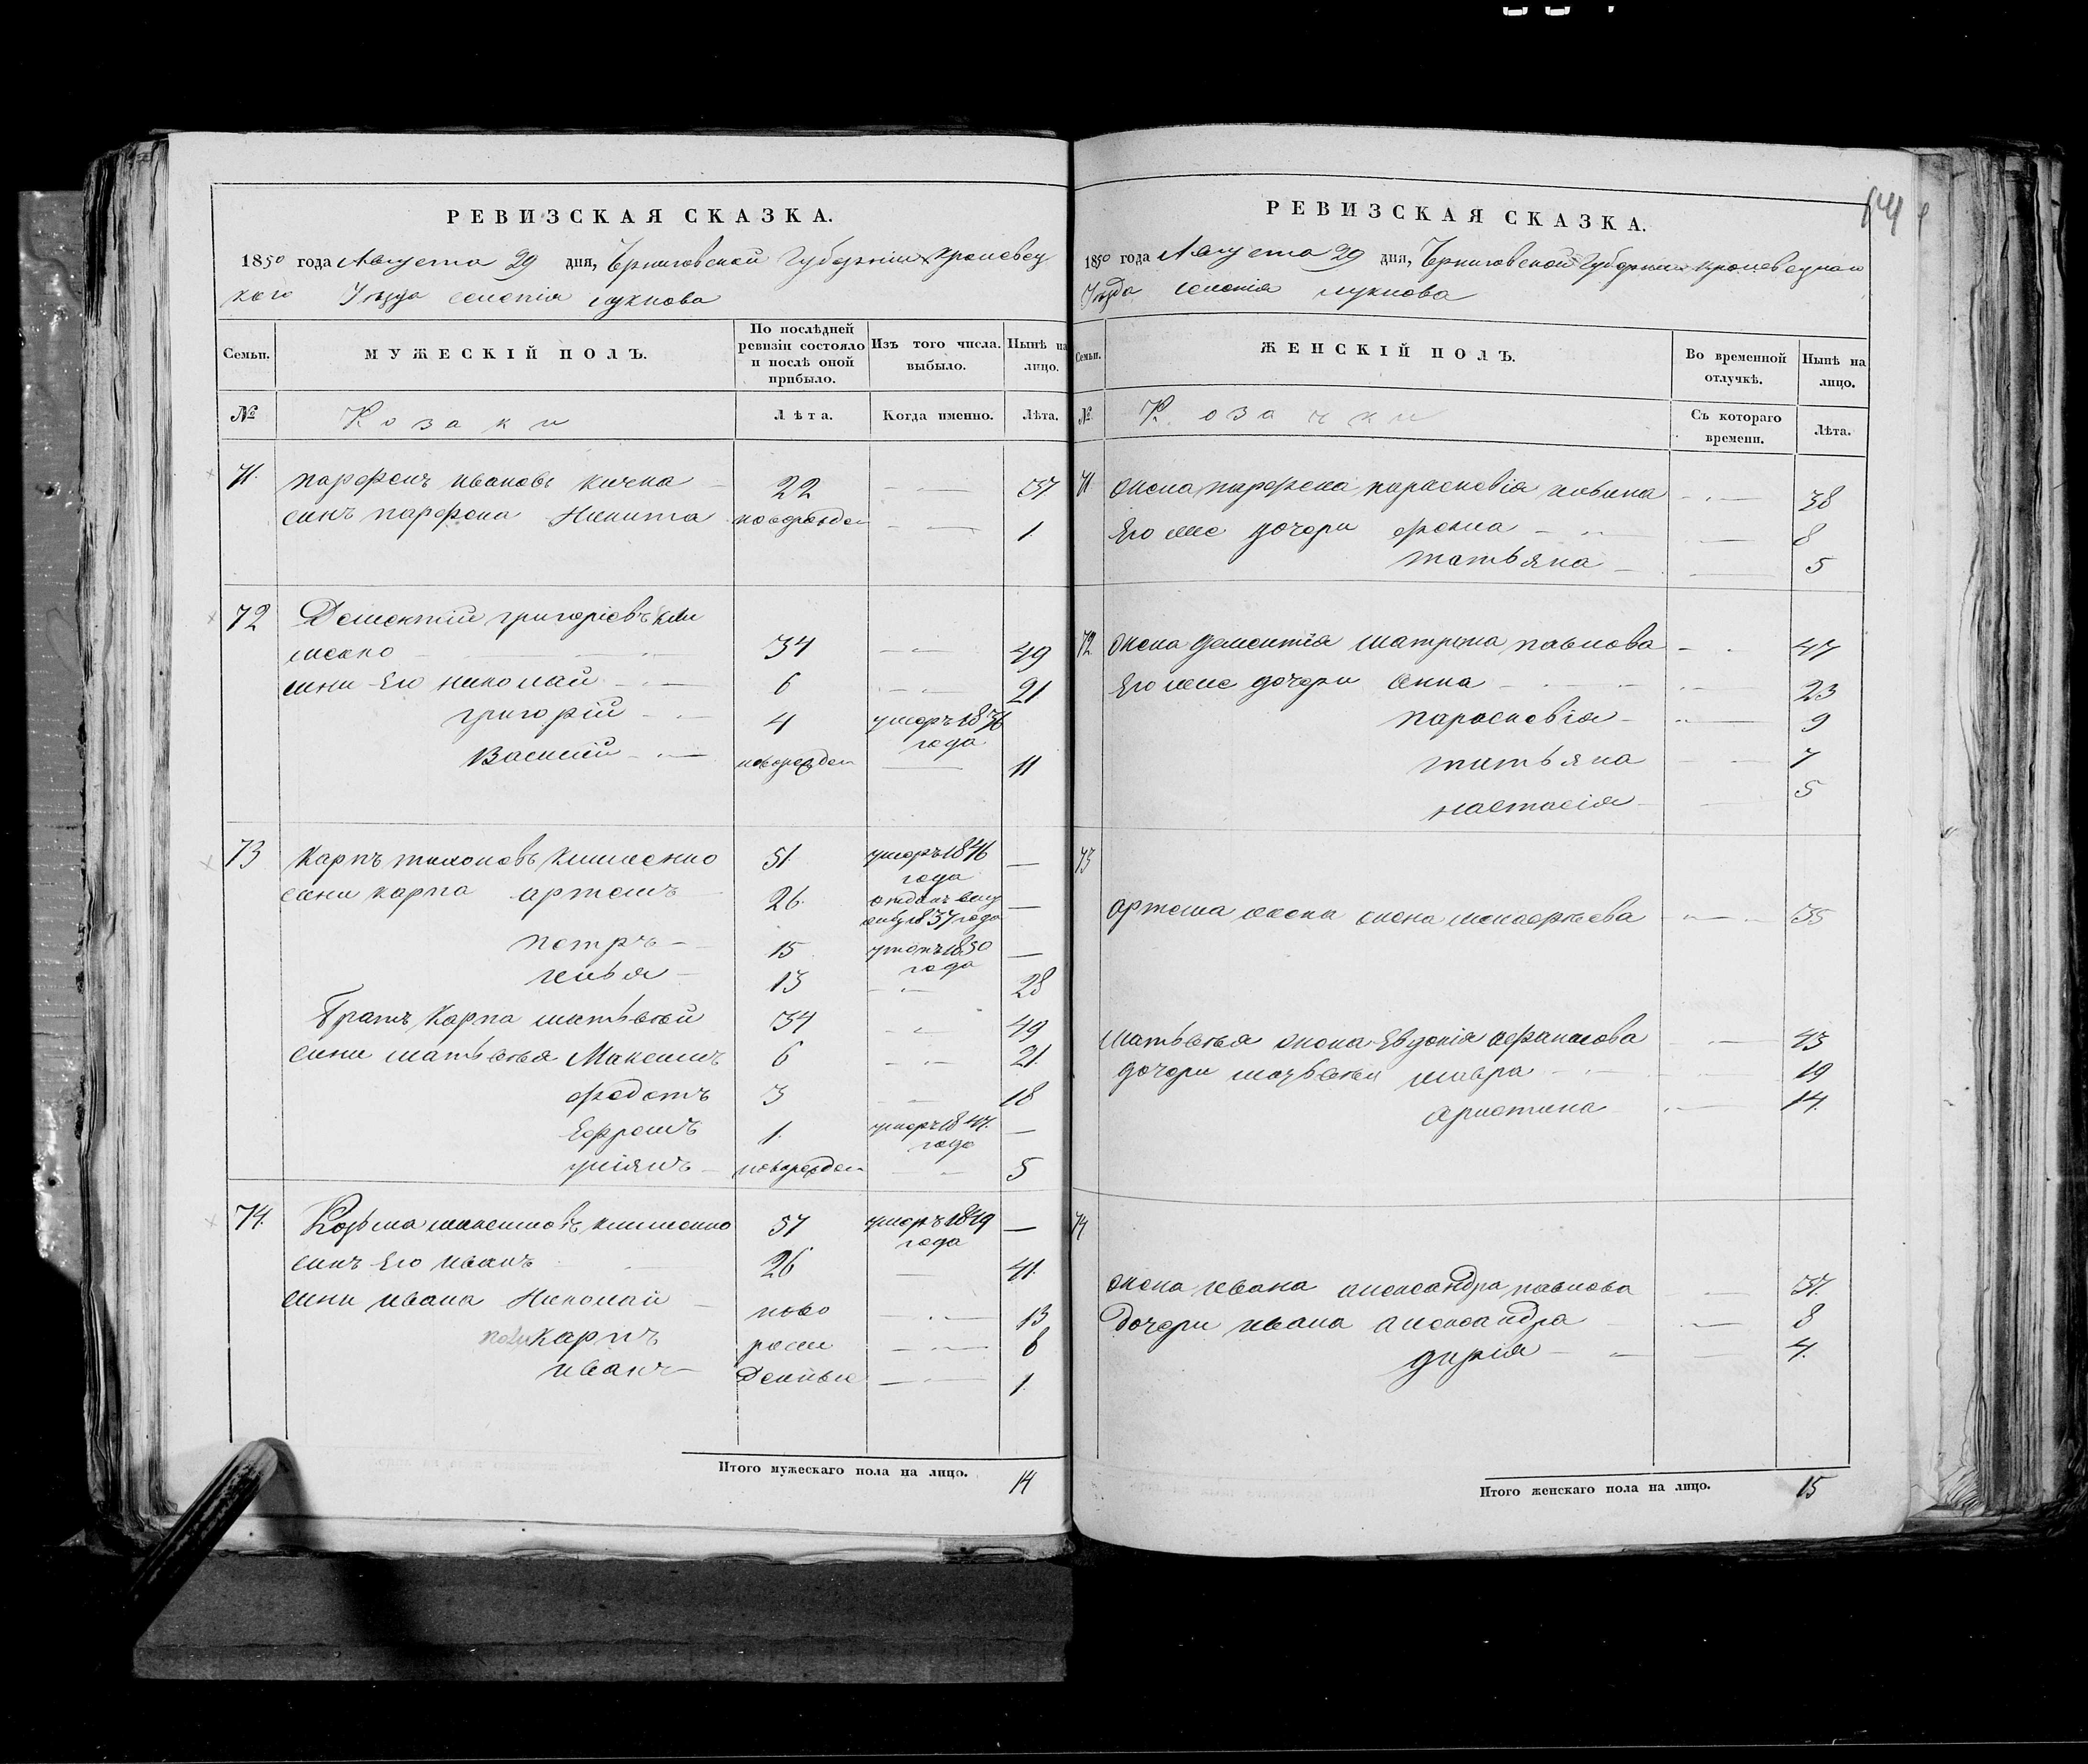 РЕВИЗСКАЯ СКАЗКА.
1850 года Августа 29 дня, Черниговской Губернии Кролевец
кого Уезда селенія лукнова
Семьи.
МУЖЕСКІЙ ПОЛЪ.
По послѣдней ревизіи состояло и послѣ оной прибыло.
Изъ того числа выбыло.
Нынѣ на лицо.
№
Козаки
Лѣта.
Когда именно.
Лѣта.
71. парфенъ ивановъ кична 22 37
синъ парфена Никита новорожден 1.
72 Дементій григоріевъ кли
менко 34 49
сини Его николай 6 21
григорій 4 умеръ 1836
года
Василій новорожден 11
73 Карпъ тихоновъ клименко 51. умеръ 1846 —
года
сини карпа артемъ 26. отданъ —
1837 года
петръ 15 1850 —
года
илья 13 28
Братъ Карпа матвѣй 34 49
сини матвѣя Максимъ 6 21.
федотъ 3 18
Ефремъ 1. умеръ 1847. —
года
новорожден 5
74. Козьма максимовъ клименко 57 умеръ 1849 —
года
синъ Его иванъ 26 41.
сини ивана Николай ново 13
поликарпъ рож 8
иванъ денные 1.
Итого мужескаго пола на лицо. 14
РЕВИЗСКАЯ СКАЗКА.
1850 года Августа 29 дня, Черниговской Губернии Кролевецкаго
Уезда селенія лукнова
Семьи.
ЖЕНСКІЙ ПОЛЪ.
Во временной отлучкѣ.
Нынѣ на лицо.
№
Козачки
Съ котораго времени.
Лѣта.
71 жена парфена парасковія 38
Его же дочери фекла 8
татьяна 5
72 жена дементія матрена павлова 47
Его же дочери анна 23
парасковія 9
татьяна 7
настасія 5
73
артема жена елена 35
матвѣя жена Евдокія афанасова 43
дочери матвѣя мавра 19
христина 14.
74
жена ивана александра павлова 37.
Дочери ивана александра 8
дарія 4.
Итого женскаго пола на лицо. 15